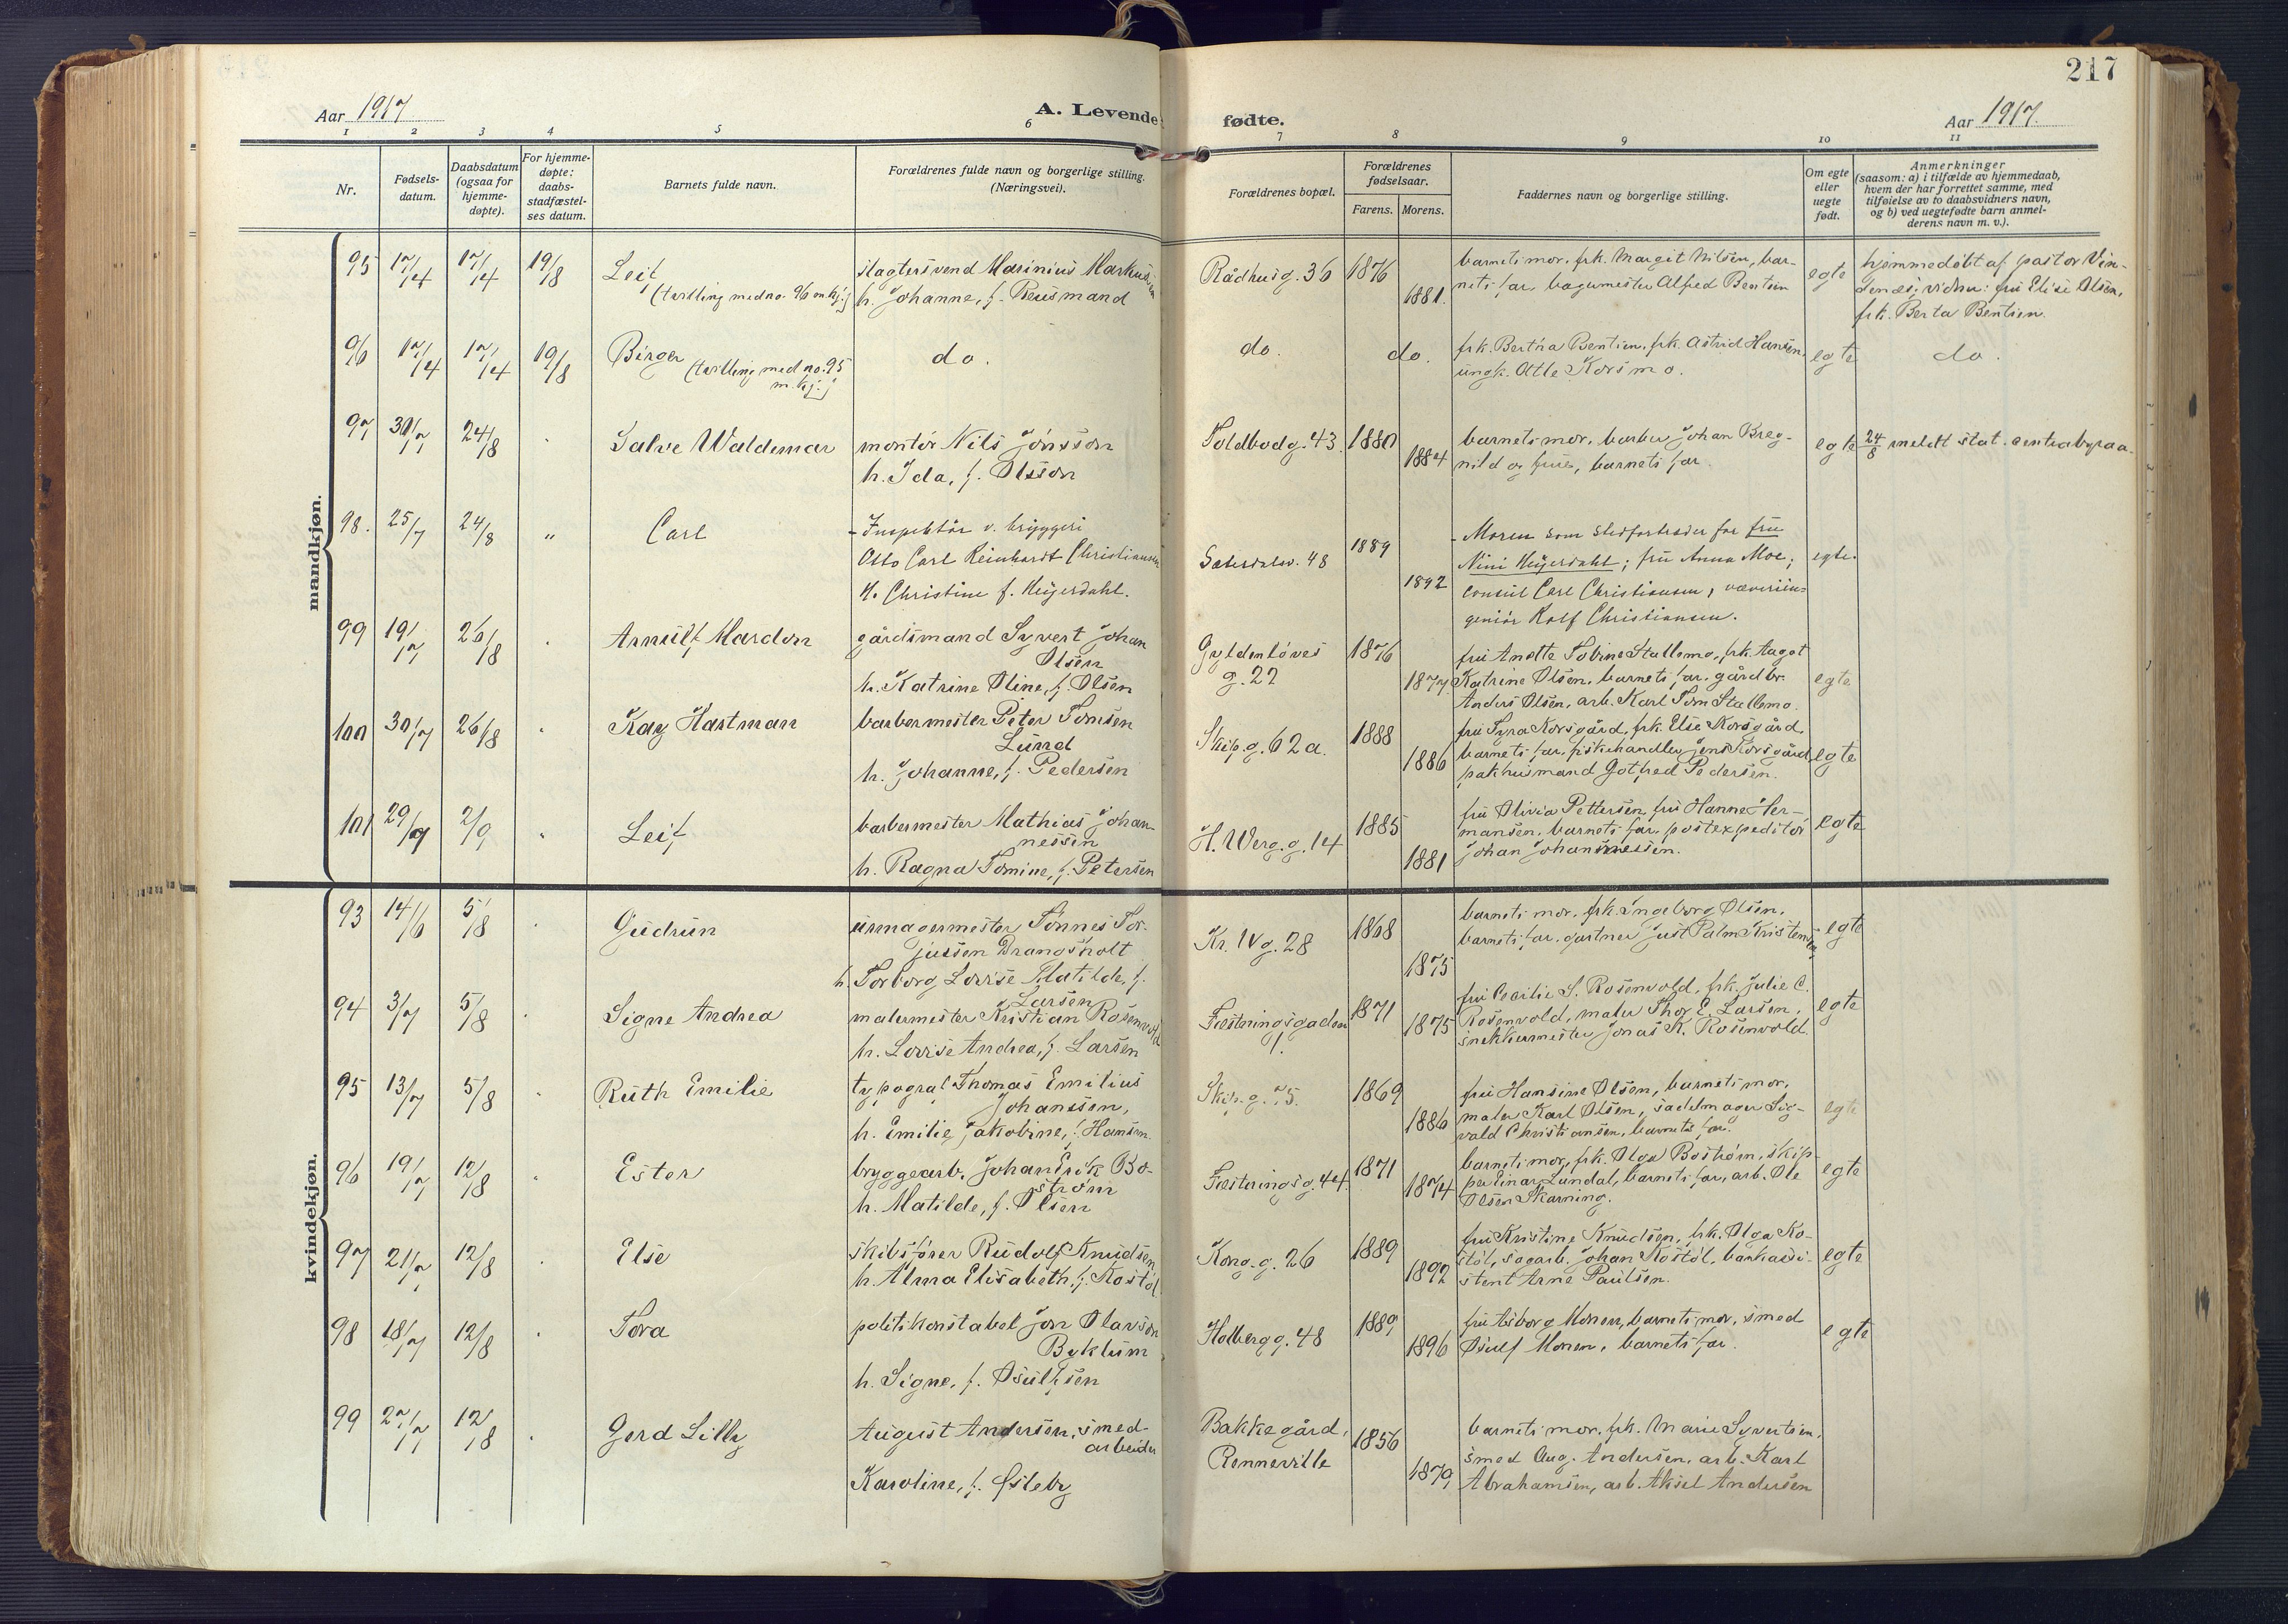 217
Aar 1917
A. Levende
fødte.
Aar 1917.
1 2 3 4 5 6 7 8 9 10 11
Nr.
Fødsels-
datum.
Daabsdatum
(ogsaa for
hjemme-
døpte).
For hjemme-
døpte:
daabs-
stadfæstel-
ses datum.
Barnets fulde navn.
Forældrenes fulde navn og borgerlige stilling.
(Næringsvei).
Forældrenes bopæl.
Forældrenes
fødselsaar.
Farens. Morens.
Faddernes navn og borgerlige stilling.
Om egte
eller
uegte
født.
Anmerkninger
(saasom: a) i tilfælde av hjemmedaab,
hvem der har forrettet samme, med
tilføielse av to daabsvidners navn,
og b) ved uegtefødte barn anmel-
derens navn m. v.).
mandkjøn.
95 17/4 17/4 19/8
Leif
(tvilling med no. 96 m.kj.)
slagtersvend Marinius Markus-
sen
h. Johanne, f. Reusmand
Rådhusg. 36 1876
1881.
barnets mor, frk. Margit Nilsen, bar-
nets far, bagermester Alfred Bentsen
egte
hjemmedöbt af pastor Vin-
denæs; vidner: fru Elise Olsen,
frk. Berta Bentsen.
96 17/4 17/4 19/8
Birger (tvilling med no. 95
m. kj.)
do.
do.
do.
frk. Bertha Bentsen, frk. Astrid Hansen,
ungk. Atle Korsmo.
egte
do.
97 30/7 24/8
Salve Waldemar
montör Nils Jönsson
h. Ida, f. Olsson
Toldbodg. 43 1880
1884
barnets mor, barber Johan Breg-
nild og frue, barnets far.
egte
24/8 meldt stat. centralbyraa.
98. 25/7 24/8 "
Carl
- Inspektör v. bryggeri
Otto Carl Reinhardt Christiansen
H. Christine f. Heyerdahl.
Setesdalsv. 48 1889
1892
- Moren som stedfortreder for fru
Nini Heyerdahl; fru Anna Moe;
consul Carl Christiansen, væveriin-
geniör Rolf Christiansen.
egte.
99 19/7 26/8
Arnulf Mardon
gårdsmand Syvert Johan
Olsen
h. Katrine Oline, f. Olsen
Gyldenlöves
g. 22
1876
1877
fru Anette Tobine Stallemo, frk. Aagot
Katrine Olsen, barnets far, gårdbr.
Anders Olsen, arb. Karl Tom Stallemo.
egte
100 30/7 26/8
Kay Hartman
barbermester Peter Tomsen
Lund
h. Johanne, f. Pedersen
Skip.g. 62a. 1888
1886
fru Tyra Korsgård, frk. Else Korsgård,
barnets far, fiskehandler Jens Korsgård,
pakhusmand Gotfred Pedersen.
egte
101 29/7 2/9
Leif
barbermester Mathias Johan-
nessen
h. Ragna Tomine, f. Petersen
H. Werg. g. 14 1885
1881
fru Olivia Pettersen, fru Hanne Her-
mansen, barnets far, postexpeditör
Johan Johannessen.
egte
kvindekjøn.
93 14/6 5/8
Gudrun
urmagermester Tönnes Tor-
jussen Drangsholt
h. Torborg Lovise Matilde, f.
Larsen
Kr. IV g. 28 1868
1875
barnets mor, frk. Ingeborg Olsen,
barnets far, gartner Just Palm Kristensen
egte
94 3/7 5/8
Signe Andrea
malermester Kristian Rosenvold
h. Lovise Andrea, f. Larsen
Festningsgaden
1.
1871
1875
fru Cecilie S. Rosenvold, frk. Julie C.
Rosenvold, maler Thor E. Larsen,
snekkermester Jonas K. Rosenvold.
egte
95 13/7 5/8
Ruth Emilie
typograf Thomas Emilius
Johanssen,
h. Emilie Jakobine, f. Hansen.
Skip.g. 75. 1869
1886
fru Hansine Olsen, barnets mor,
maler Karl Olsen, sadelmager Sig-
vald Christiansen, barnets far.
egte
96 19/7 12/8
Ester
bryggearb. Johan Erik Bo-
ström
h. Matilde, f. Olsen
Festningsg. 44. 1871
1874
barnets mor, frk. Olga Boström, skip-
per Einar Lundal, barnets far, arb. Ole
Olsen Skarning.
egte
97 21/7 12/8
Else
skibsförer Rudolf Knudsen
h. Alma Elisabeth, f. Kostöl
Kong.g. 26 1889
1892
fru Kristine Knudsen, frk. Olga Ko-
stöl, sagarb. Johan Kostöl, bankassi-
stent Arne Paulsen.
egte
98 18/7 12/8
Tora
politikonstabel Jon Olavson
Byklum
h. Signe, f. Osulfsen
Holbergg. 48 1889
1896
fru Asborg Monen, barnets mor, smed
Osulf Monen, barnets far.
egte
99 27/7 12/8
Gerd Lilly
August Andersen, smed-
arbeider
Karoline, f. Østeby
Bakkegård,
Renneville
1856
1879
barnets mor, frk. Marie Syvertsen,
smed Aug. Andersen, arb. Karl
Abrahamsen, arb. Aksel Andersen